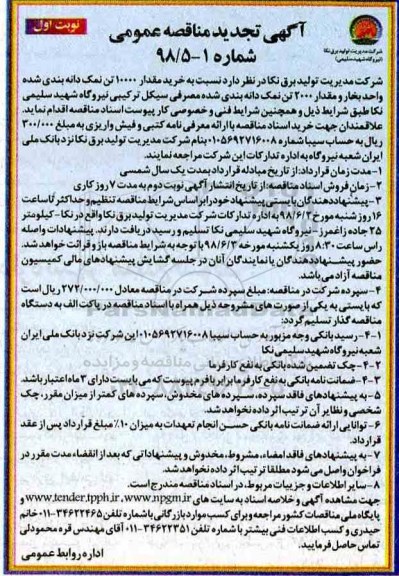 نوبت اول
آگهی تجدید مناقصه عمومی
شماره ۱-۹۸/۵
شرکت مدیریت تولید برق نکا
(نیروگاه شهید سلیمی)
شرکت مدیریت تولید برق نکا در نظر دارد نسبت به خرید مقدار ۱۰۰۰۰ تن نمک دانه بندی شده
واحد بخار و مقدار ۲۰۰۰ تن نمک دانه بندی شده مصرفی سیکل ترکیبی نیروگاه شهید سلیمی
نکا طبق شرایط ذیل و همچنین شرایط فنی و خصوصی کار پیوست اسناد مناقصه اقدام نماید.
علاقمندان جهت خرید اسناد مناقصه با ارائه معرفی نامه کتبی و فیش واریزی به مبلغ ۳۰۰/۰۰۰
ریال به حساب سیبا شماره ۰۱۰۵۶۹۲۷۱۶۰۰۸ بنام شرکت مدیریت تولید برق نکا نزد بانک ملی
ایران شعبه نیروگاه به اداره تدارکات این شرکت مراجعه نمایند.
۱-مدت زمان قرارداد: از تاریخ مبادله قرارداد بمدت یک سال شمسی
۲-زمان فروش اسناد مناقصه: از تاریخ انتشار آگهی نوبت دوم به مدت ۷ روز کاری
۳-پیشنهاددهندگان بایستی پیشنهاد خود را بر اساس شرایط مناقصه تنظیم و حداکثر تا ساعت
۱۶ روز شنبه مورخ ۹۸/۶/۲ به اداره تدارکات شرکت مدیریت تولید برق نکا واقع در نکا - کیلومتر
۲۵ جاده زاغمرز - نیروگاه شهید سلیمی نکا تسلیم و رسید دریافت دارند. پیشنهادات واصله
راس ساعت ۸:۳۰ روز یکشنبه مورخه ۹۸/۶/۳ با توجه به شرایط مناقصه باز و قرائت خواهد شد.
حضور پیشنهاددهندگان یا نمایندگان آنان در جلسه گشایش پیشنهادهای مالی کمیسیون
مناقصه آزاد می باشد.
۴-سپرده شرکت در مناقصه: مبلغ سپرده شرکت در مناقصه معادل ۲۷۲/۰۰۰/۰۰۰ ریال است
که بایستی به یکی از صورت های مشروحه ذیل همراه با اسناد مناقصه در پاکت الف به دستگاه
مناقصه گذار تسلیم گردد:
۴-۱-رسید بانکی وجه مزبور به حساب سیبا ۰۱۰۵۶۹۲۷۱۶۰۰۸ این شرکت نزد بانک ملی ایران
شعبه نیروگاه شهید سلیمی نکا
۴-۲-چک تضمین شده بانکی به نفع کارفرما
۴-۳-ضمانت نامه بانکی به نفع کارفرما برابر با فرم پیوست که می بایست دارای ۳ ماه اعتبار باشد.
۵-به پیشنهادهای فاقد سپرده، سپرده های مخدوش، سپرده های کمتر از میزان مقرر، چک
شخصی و نظایر آن ترتیب اثر داده نخواهد شد.
۶-توانایی ارائه ضمانت نامه بانکی حسن انجام تعهدات به میزان ۱۰٪ مبلغ قرارداد پس از عقد
قرارداد.
۷-به پیشنهادهای فاقد امضاء، مشروط، مخدوش و پیشنهاداتی که بعد از انقضاء مدت مقرر در
فراخوان واصل می شود مطلقا ترتیب اثر داده نخواهد شد.
۸-سایر اطلاعات و جزییات مربوط، در اسناد مناقصه مندرج است.
جهت مشاهده آگهی و خلاصه اسناد به سایت های www.tender.tpph.ir، www.npgm.ir و
پایگاه ملی مناقصات کشور مراجعه و برای کسب موارد بازرگانی با شماره تلفن ۳۴۶۲۲۴۶۵-۰۱۱ خانم
حیدری و کسب اطلاعات فنی بیشتر با شماره تلفن ۳۴۶۲۲۳۵۱-۰۱۱ آقای مهندس قره محمودلی
تماس حاصل فرمایید.
اداره روابط عمومی